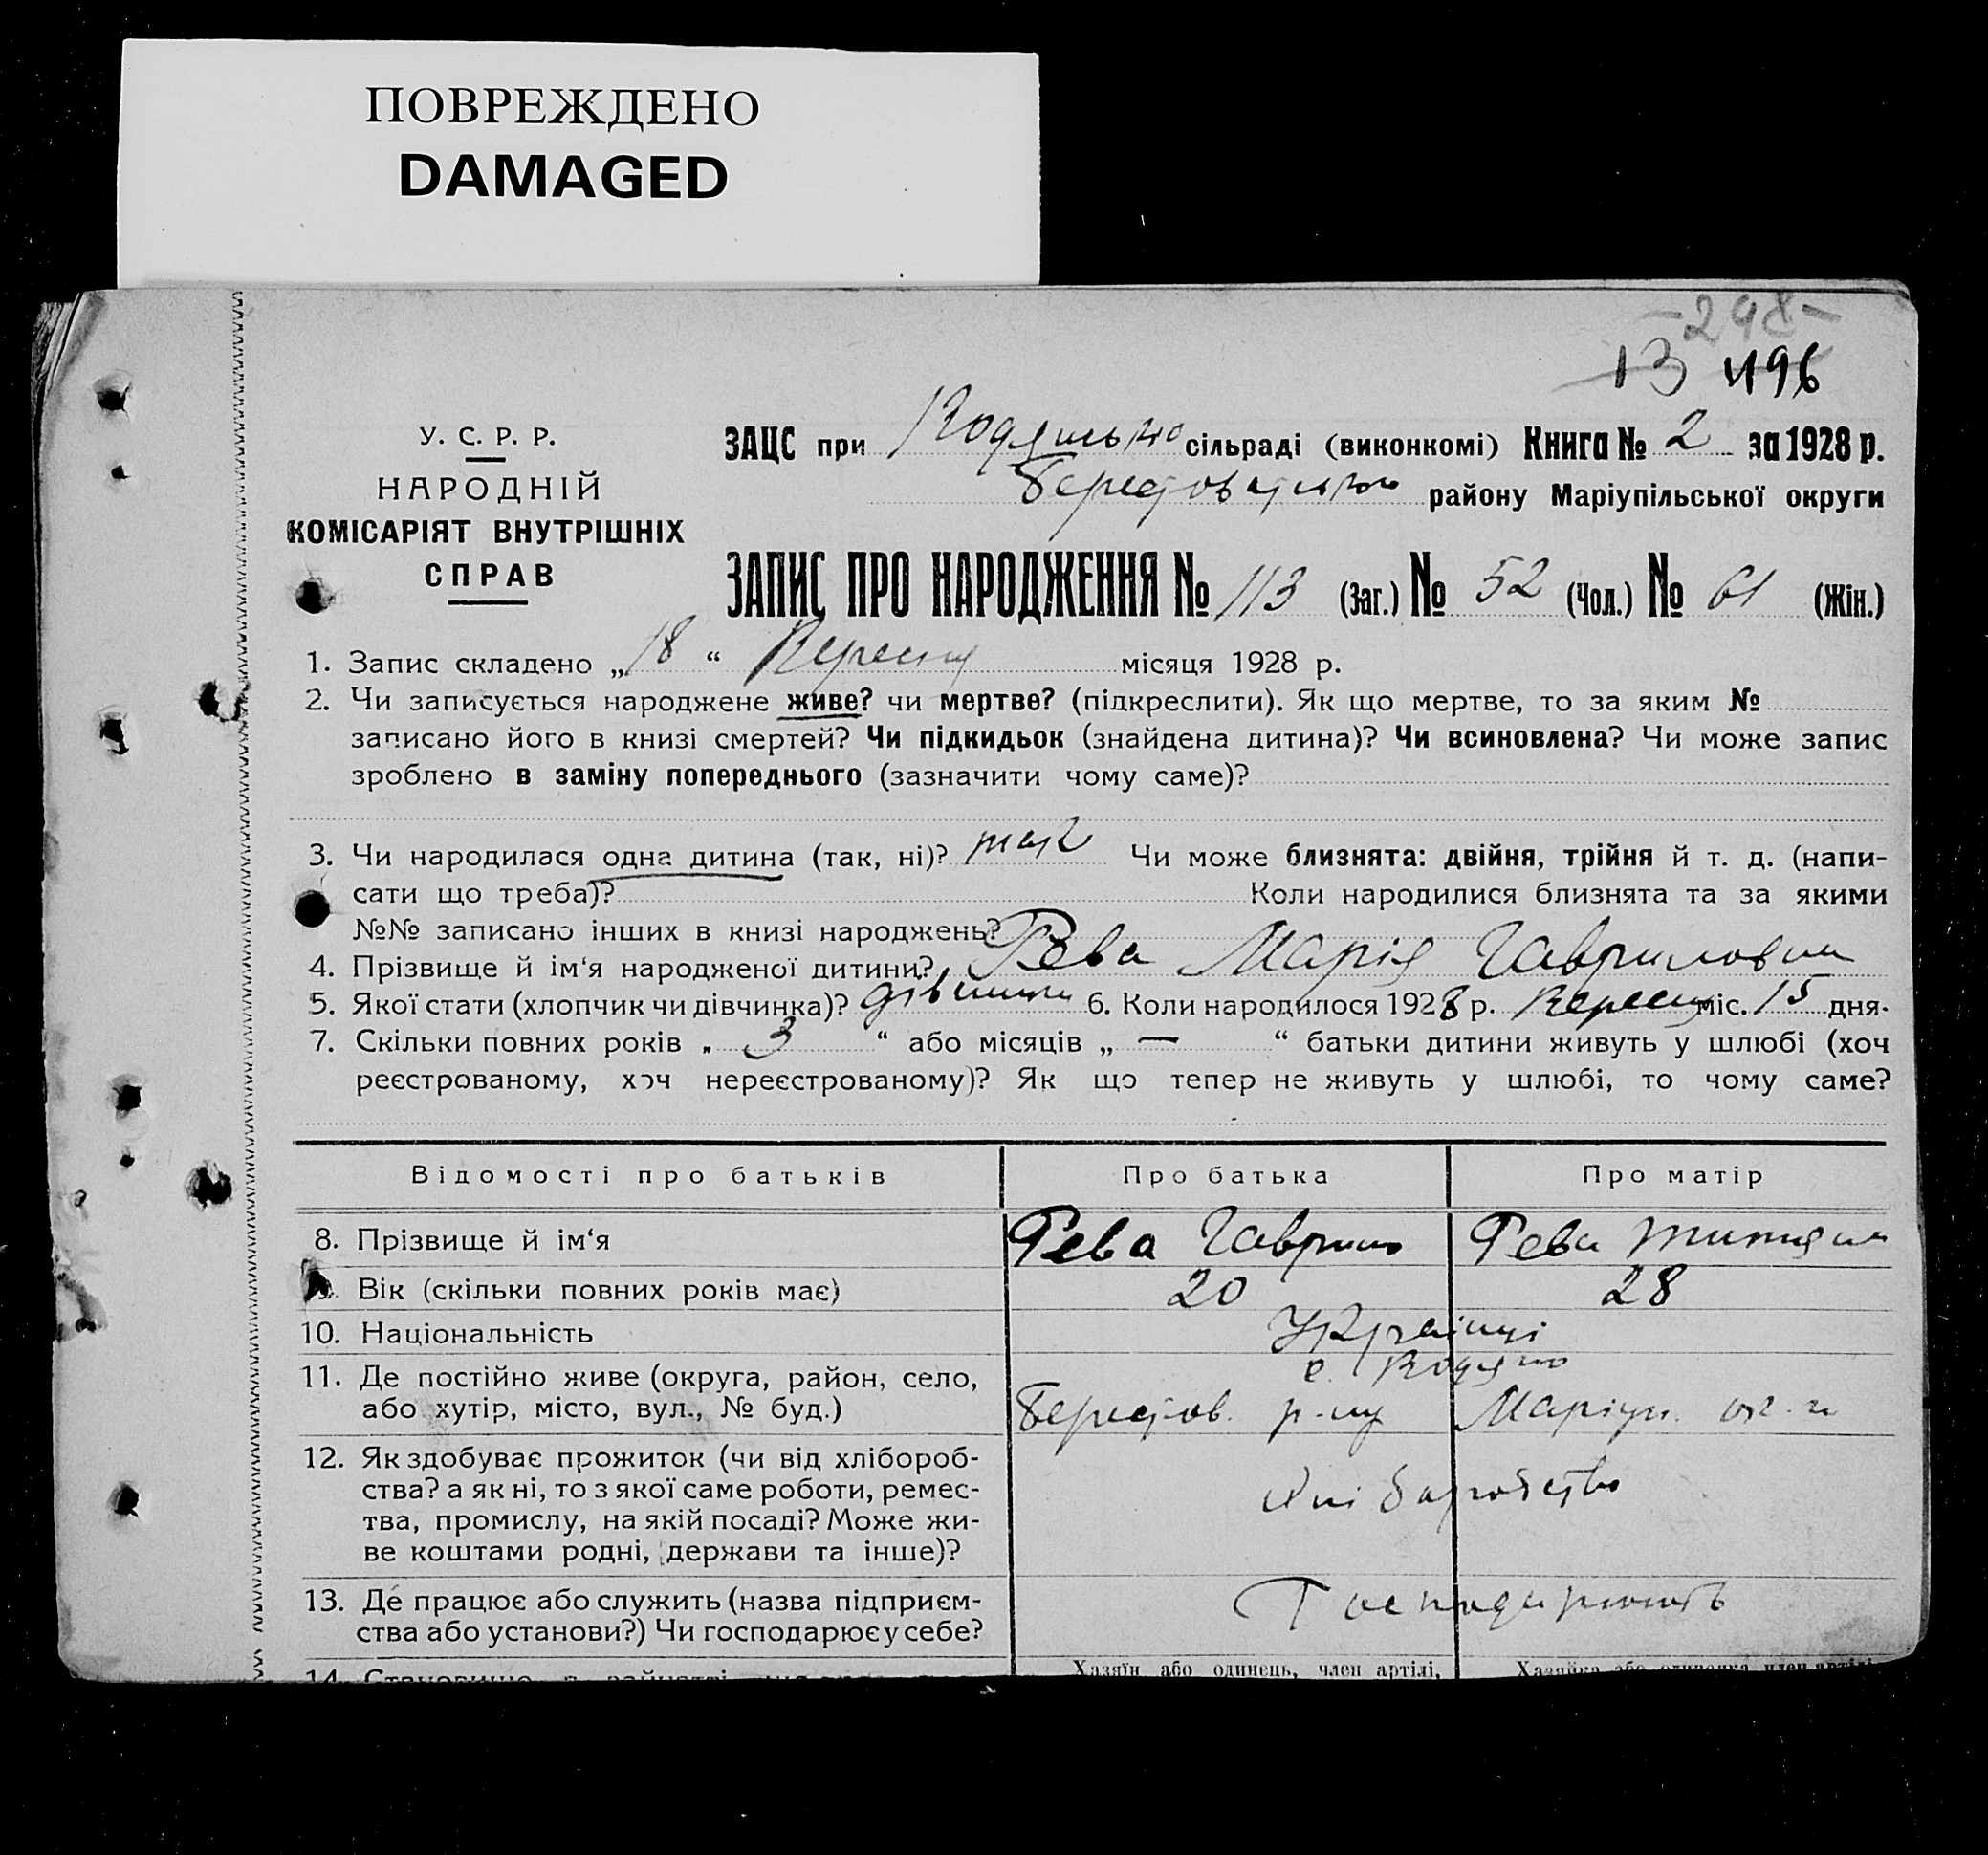 ПОВРЕЖДЕНО
DAMAGED
-298-
13 496
У. С. Р. Р.
НАРОДНІЙ
КОМІСАРІЯТ ВНУТРІШНІХ
СПРАВ
ЗАЦС при сільраді (виконкомі) Книга № 2 за 1928 р.
району Маріупільської округи
ЗАПИС ПРО НАРОДЖЕННЯ № 113 (Заг.) № 52 (Чол.) № 61 (Жін.)
1. Запис складено „18“ Вересня місяця 1928 р.
2. Чи записується народжене живе? чи мертве? (підкреслити). Як що мертве, то за яким №
записано його в книзі смертей? Чи підкидьок (знайдена дитина)? Чи всиновлена? Чи може запис
зроблено в заміну попереднього (зазначити чому саме)?
3. Чи народилася одна дитина (так, ні)? так Чи може близнята: двійня, трійня й т. д. (напи-
сати що треба)? Коли народилися близнята та за якими
№№ записано інших в книзі народжень?
4. Прізвище й ім‘я народженої дитини? Рева Марія Гавриловна
5. Якої стати (хлопчик чи дівчинка)? дівчинка 6. Коли народилося 1928 р. Вересня міс. 15 дня.
7. Скільки повних років „ 3 “ або місяців „ — “ батьки дитини живуть у шлюбі (хоч
реєстрованому, хоч нереєстрованому)? Як що тепер не живуть у шлюбі, то чому саме?
Відомості про батьків Про батька Про матір
8. Прізвище й ім‘я Рева Гаврило Рева
9. Вік (скільки повних років має) 20 28
10. Національність Українці
11. Де постійно живе (округа, район, село, с. Водяно
або хутір, місто, вул., № буд.) Берестов. р-ну Маріуп. ок-и
12. Як здобуває прожиток (чи від хлібороб-
ства? а як ні, то з якої саме роботи, ремес- Хліборобство
тва, промислу, на якій посаді? Може жи-
ве коштами родні, держави та інше)?
13. Де працює або служить (назва підприєм- Господарюють
ства або установи?) Чи господарює у себе?
14. Становище в занятті
Хазяїн або одинець, член артілі, Хазяйка або одиначка, член артілі